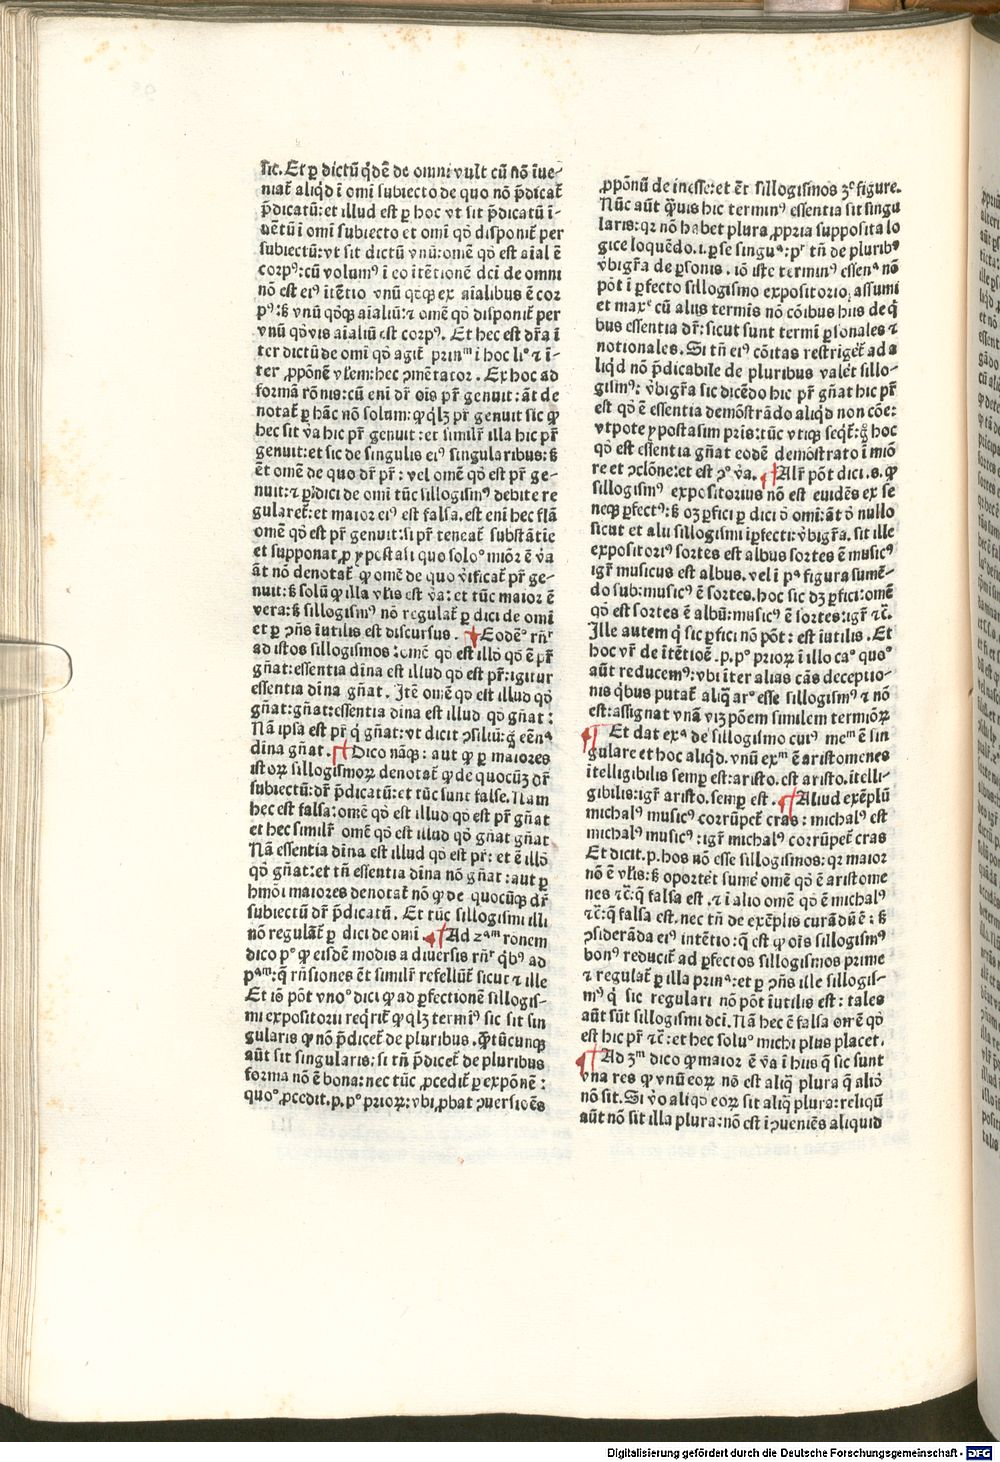 sic. Et ꝑ dictū q̇dē de omni vult cū nō īue-
niat᷑ aliqd ī omi subiecto de quo nō p̄dicat᷑
p̄dicatū: et illud est ꝑ hoc vt sit p̄dicatū ī-
uētū ī omi subiecto et omi qd̄ disponit᷑ per
subiectū: vt sit dictū vnū: omē qd̄ est aial ē
corpꝰ: cū volumꝰ ī eo ītētionē dci de omni
nō est eiꝰ ītētio vnū qꝺqꝫ ex aialibus ē cor
pꝰ: ß vnū qd̄qꝫ aialiū: ⁊ omē qd̄ disponit᷑ per
vnū qd̄vis aialiū est corpꝰ. Et hec est dr̄a ī
ter dictū de omi qd̄ agit᷑ prinᵐ ī hoc liᵒ ⁊ ī-
ter ꝓpōnē vl̄em: hec ꝯmētator. Ex hoc ad
formā rōnis: cū eni dr̄ ois pr̄ genuit: āt de
notat᷑ ꝑ hāc nō solum: ꝙ qlꝫ pr̄ genuit sic ꝙ
hec sit v̇a hic pr̄ genuit: et simil᷑r illa hic pr̄
genuit: et sic de singulis eiꝰ singularibus: ß
ēt omē de quo dr̄ pr̄: vel omē qd̄ est pr̄ ge-
nuit: ⁊ ꝑ dici de omi tūc sillogismꝰ debite re
gularet᷑: et maior eiꝰ est falsa. est eni hec fl̄a
omē qd̄ est pr̄ genuit: si pr̄ teneat᷑ substātie
et supponat᷑ ꝑ ypostasi quo soloᵒ miōr ē v̇a
āt nō denotat᷑ ꝙ omē de quo v̇ificat᷑ pr̄ ge-
nuit: ß solū ꝙ illa vl̄is est v̇a: et tūc maior ē
vera: ß sillogismꝰ nō regulat᷑ ꝑ dici de omi
et ꝑ ꝯn̄s īutilis est discursus. ¶ Eodēᵒ rn̄r
ad istos sillogismos: omē qd̄ est illō qd̄ ē pr̄
gn̄at: essentia dīna est illud qd̄ est pr̄: igitur
essentia dīna gn̄at. Itē omē qd̄ est illud qd̄
gn̄at: gn̄at: essentia dīna est illud qd̄ gn̄at:
Nā ipsa est pr̄ q̇ gn̄at: vt dicit ꝯsiliū: ḡ eēnᵃ
dīna gn̄at. ¶ Dico nāqꝫ: aut ꝙ ꝑ maiores
istoꝝ sillogismoꝝ denotat᷑ ꝙ de quocūꝫ dr̄
subiectū: dr̄ p̄dicatū: et tūc sunt false. Nam
hec est falsa: omē qd̄ est illud qd̄ est pr̄ gn̄at
et hec simil᷑r omē qd̄ est illud qd̄ gn̄at gn̄at
Nā essentia dīna est illud qd̄ est pr̄: et ē illō
qd̄ gn̄at: et tn̄ essentia dīna nō gn̄at: aut ꝑ
hmōi maiores denotat᷑ nō ꝙ de quocūqꝫ dr̄
subiectū dr̄ p̄dicatū. Et tūc sillogismi illi
nō regulāt᷑ ꝑ dici de omi ¶ Ad 2ᵃᵐ rōnem
dico pᵒ ꝙ eisdē modis a diuersis rn̄r q̇bꝰ ad
pᵃᵐ: q̄ rn̄siones ēt simil᷑r refellūt᷑ sicut ⁊ ille
Et iō pōt vnoᵒ dici ꝙ ad ꝑfectionē sillogis-
mi expositorii reqrit᷑ ꝙ qlꝫ termiꝰ sic sit sin
gularis ꝙ nō p̄dicet᷑ de pluribus. Qn̄tūcunqꝫ
aūt sit singularis: si tn̄ p̄dicet᷑ de pluribus
forma nō ē bona: nec tūc ꝓcedit᷑ ꝑ expōnē:
quoᵒ ꝓcedit. p. pᵒ prioꝝ: vbi ꝓbat ꝯuersiōēs
ꝓpōnū de inesse: et ēt sillogismos 3ᵉ figure.
Nūc aūt q̄uis hic terminꝰ essentia sit singu
laris: qꝛ nō habet plura ꝓpria supposita lo
gice loquēdo. i. ꝑ se singuᵃ: pᵗ tn̄ de pluribꝰ
v̇bigr̄a de ꝑsonis. iō iste terminꝰ essenᵃ nō
pōt ī ꝑfecto sillogismo expositorio. assumi
et maxᵉ cū aliis termīs nō cōibus hiis de q̇
bus essentia dr̄: sicut sunt termī ꝑsonales ⁊
notionales. Si tn̄ eiꝰ cōitas restrīget᷑ ad a
liq̇d nō p̄dicabile de pluribus valet᷑ sillo-
gismꝰ: v̇bigr̄a sic dicēdo hic pr̄ gn̄at hic pr̄
est qd̄ ē essentia demōstrādo aliqd non cōe:
vtpote ypostasim pris: tūc vtiqꝫ seqt᷑: ḡ hoc
qd̄ est essentia gn̄at eodē demōstrato ī miō
re et ꝯclōne: et est ꝯᵒ v̇a. ¶ Alr̄ pōt dici. s. ꝙ
sillogismꝰ expositorius nō est euidēs ex se
neqꝫ ꝑfectꝰ: ß oꝫ ꝑfici ꝑ dici d̄ omi: āt d̄ nullo
sicut et alii sillogismi īꝑfecti: v̇bigr̄a. sit ille
expositoriꝰ sortes est albus sortes ē musicꝰ
igr̄ musicus est albus. vel ī pᵃ figura sumē-
do sub: musicꝰ ē sortes. hoc sic dꝫ ꝑfici: omē
qd̄ est sortes ē albū: musicꝰ ē sortes: igr̄ ⁊c̄.
Ille autem q̇ sic ꝑfici nō pōt: est īutilis. Et
hoc vr̄ de ītētiōe. p. pᵒ prioꝝ ī illo caᵒ quoᵒ
aūt reducemꝰ: vbi īter alias cās deceptio-
nis q̇bus putat᷑ aliq̇ arᵒ esse sillogismꝰ ⁊ nō
est: assignat vnā viꝫ pōem similem termiōꝝ
¶ Et dat exᵃ de sillogismo cuiꝰ meᵐ ē sin
gulare et hoc aliqd. vnū exᵐ ē aristomenes
ītelligibilis semꝑ est: aristo. est aristo. ītelli-
gibilis: igr̄ aristo. semꝑ est. ¶ Aliud exēplū
michalꝰ musicꝰ corrūpet᷑ cras: michalꝰ est
michalꝰ musicꝰ: igr̄ michalꝰ corrūpet᷑ cras
Et dicit. p. hos nō esse sillogismos: qꝛ maior
nō ē vl̄is: ß oportet sume᷑ omē qd̄ ē aristome
nes ⁊c̄: q̄ falsa est. ⁊ ī alio omē qd̄ ē michalꝰ
⁊c̄: q̄ falsa est. nec tn̄ de exēplis curādū ē: ß
ꝯsiderāda eiꝰ intētio: q̄ est ꝙ ois sillogismꝰ
bonꝰ reducit᷑ ad ꝑfectos sillogismos prime
⁊ regulat᷑ ꝑ illa prinᵃ: et ꝑ ꝯn̄s ille sillogis-
mꝰ q̇ sic regulari nō pōt īutilis est: tales
aūt sūt sillogismi dci. Nā hec ē falsa omē qd̄
est hic pr̄ ⁊c̄: et hec soluᵒ michi plus placet.
¶ Ad 3ᵐ dico ꝙ maior ē v̇a ī hiis q̄ sic sunt
vna res ꝙ vnū eoꝝ nō est aliq̄ plura q̄ aliō
nō sit. Si v̇o aliqd eoꝝ sit aliq̄ plura: reliqū
aūt nō sit illa plura: nō est īꝯueniēs aliquid
Digitalisierung gefördert durch die Deutsche Forschungsgemeinschaft - DFG